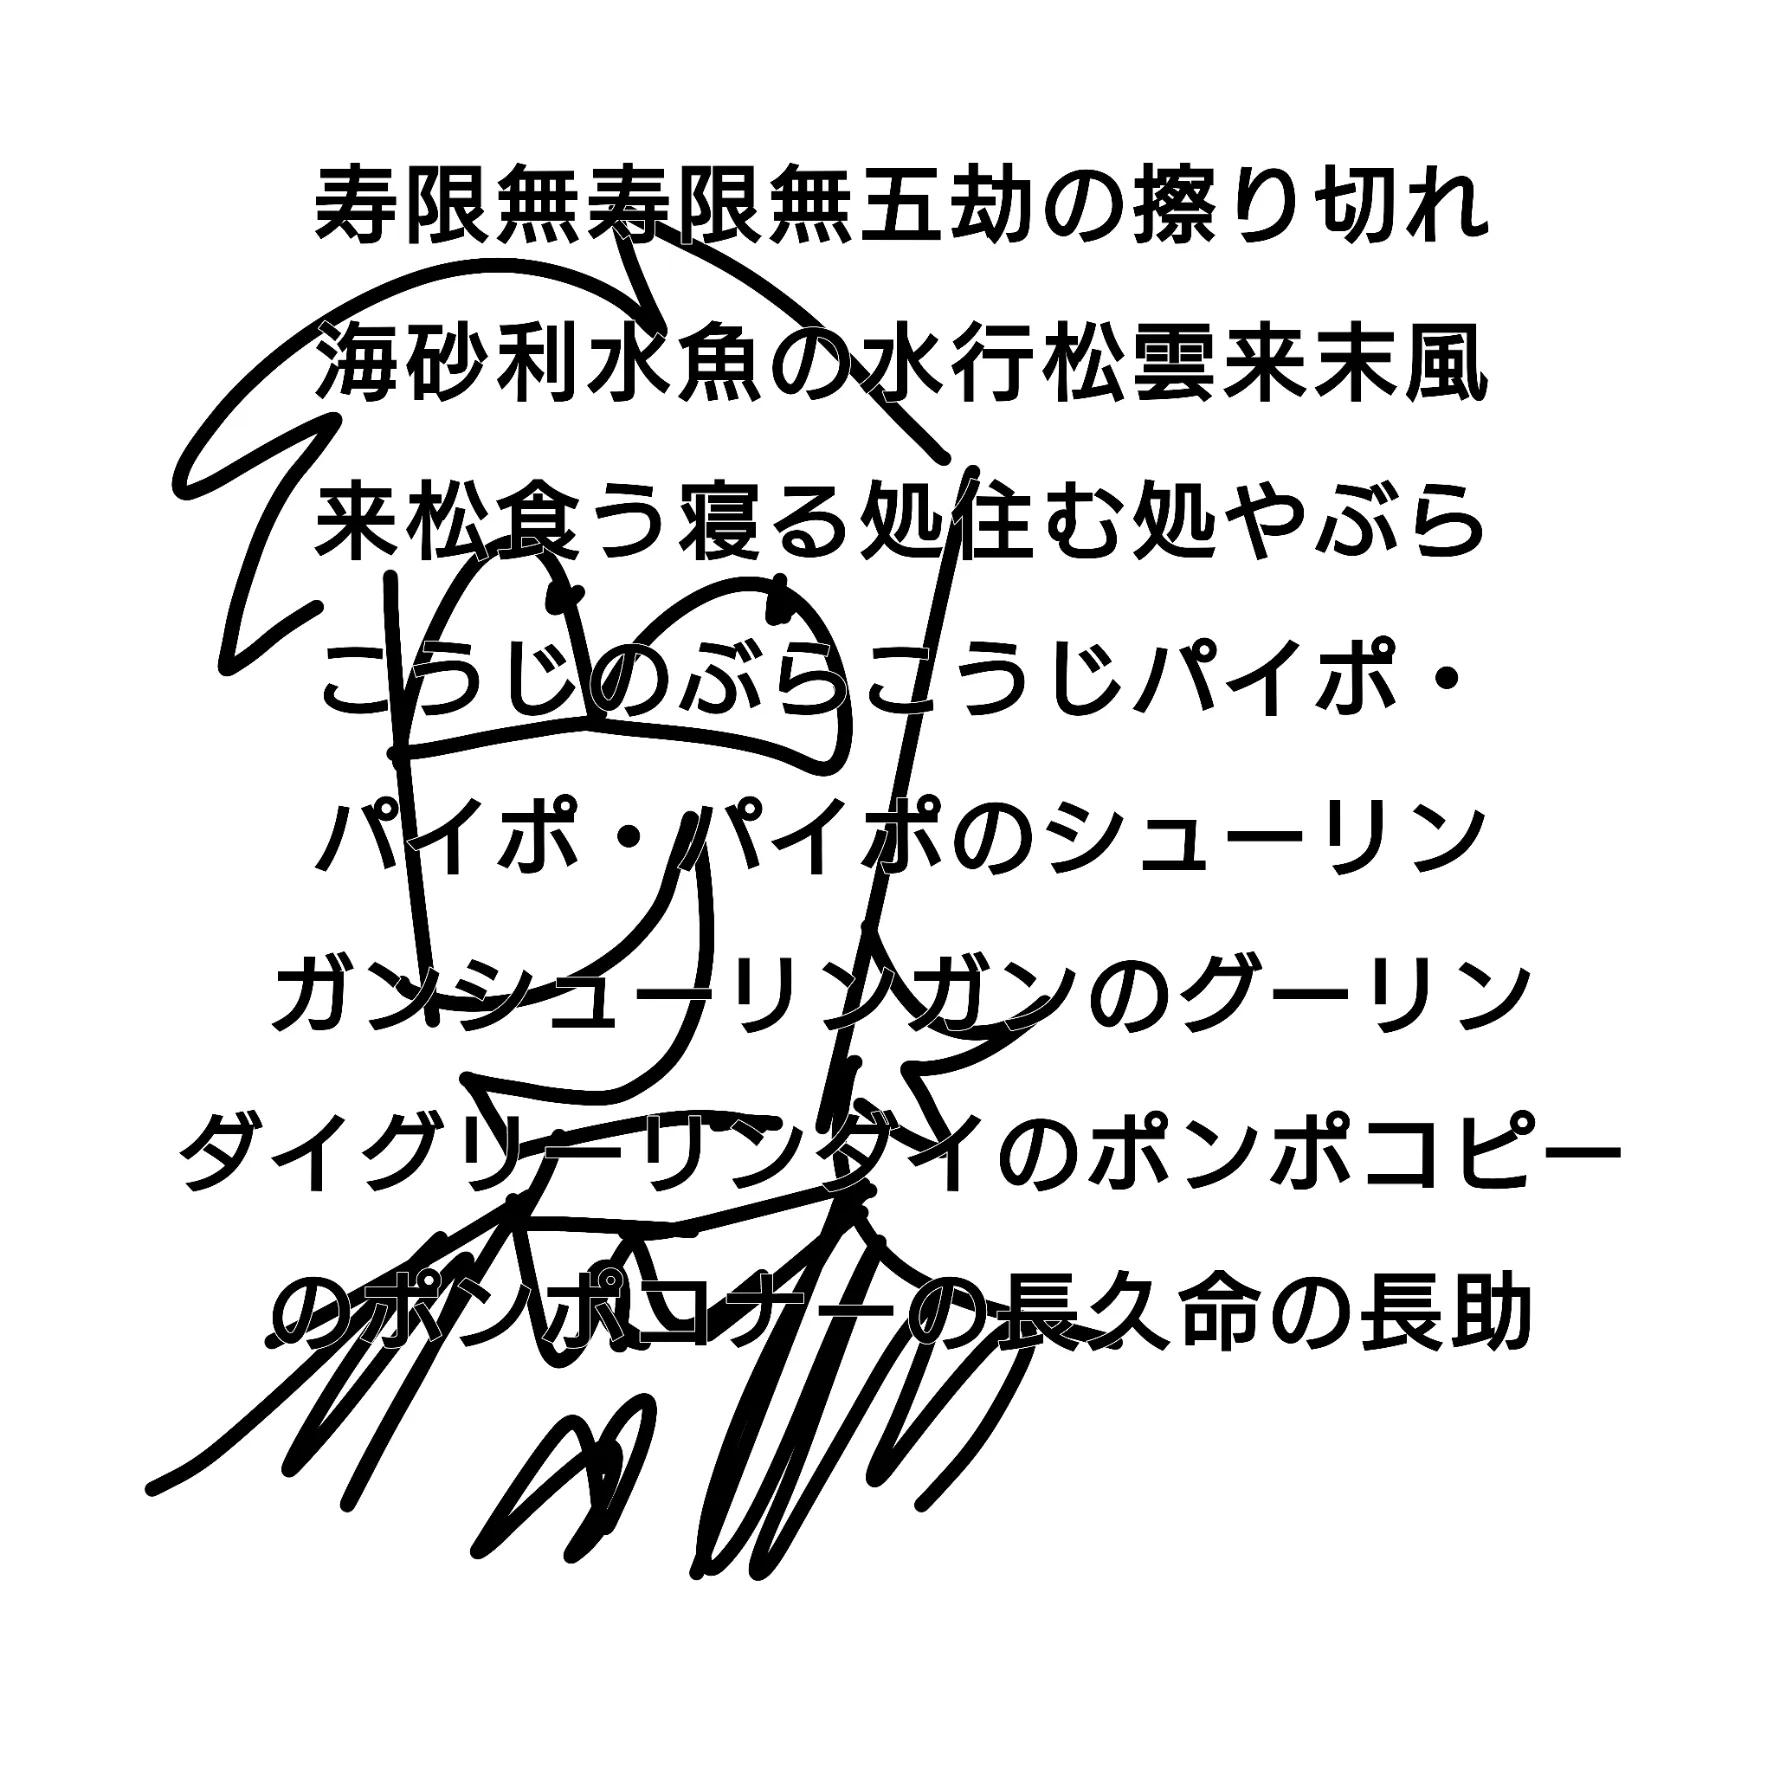 寿限無寿限無五劫の擦り切れ
海砂利水魚の水行松雲来末風
来松食う寝る処住む処やぶら
こうじのぶらこうじパイポ・
パイポ・パイポのシューリン
ガンシューリンガンのグーリン
ダイグリーリンダイのポンポコピー
のポンポコナーの長久命の長助